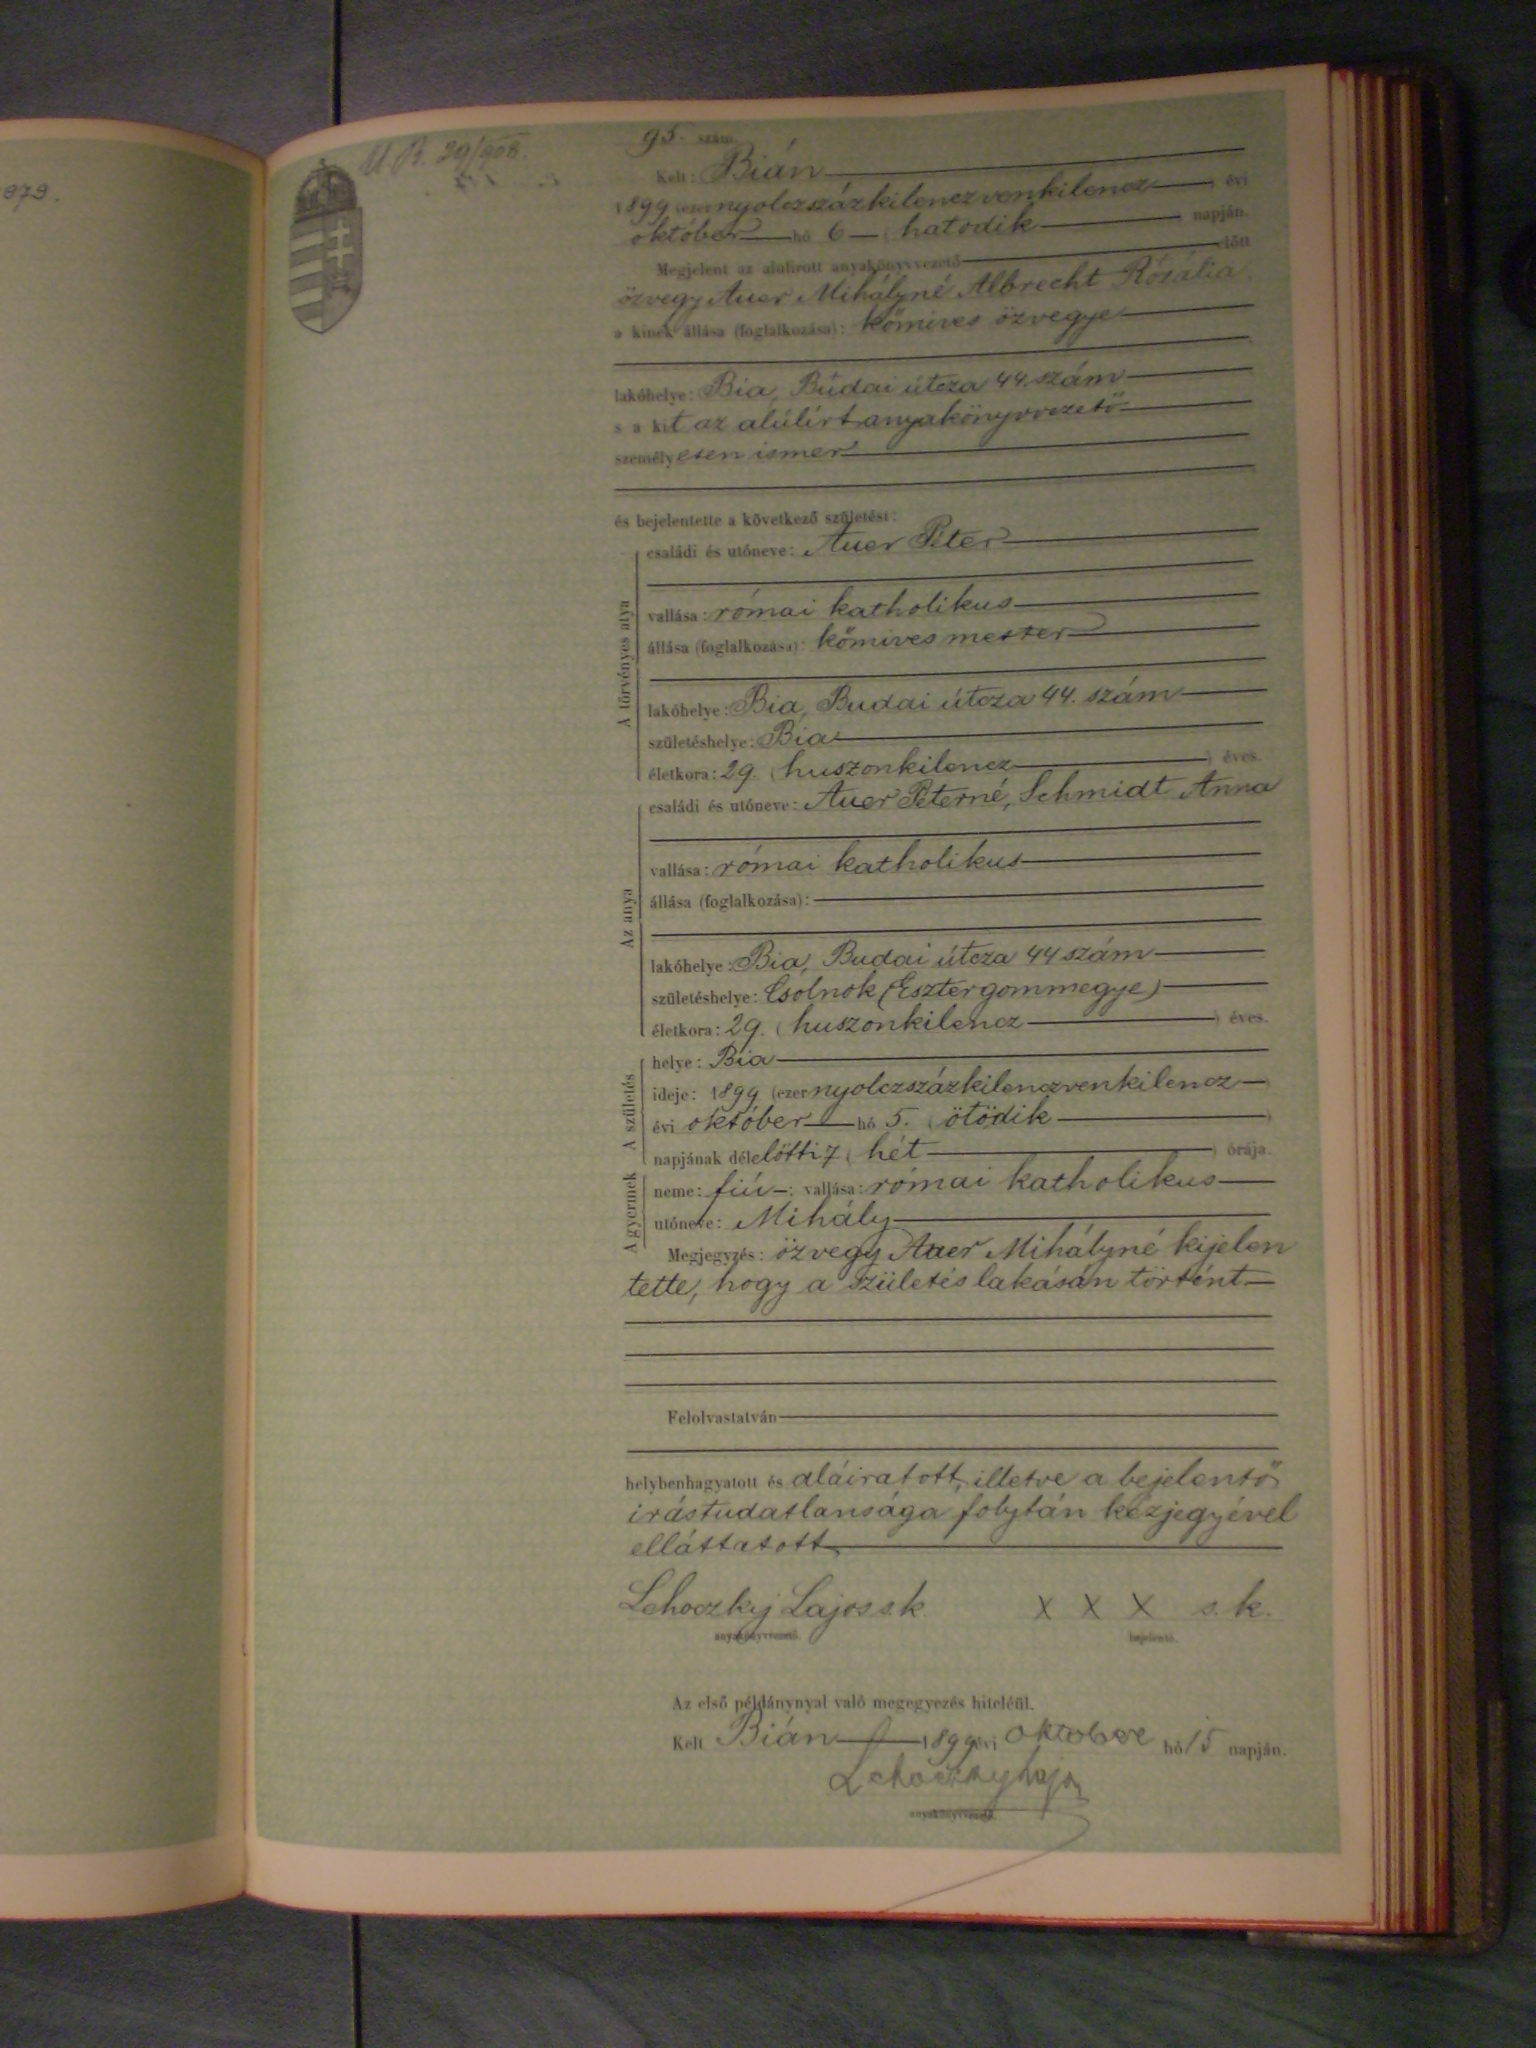 979.
U. B. 29/908.
95. szám
Kelt: Bián
1899 (ezer nyolczszázkilenczvenkilencz) évi
október hó 6 (hatodik) napján.
Megjelent az alulirott anyakönyvvezető előtt
özvegy Auer Mihályné Albrecht Rozália
a kinek állása (foglalkozása): kőmives özvegye
lakóhelye: Bia, Budai útcza 44. szám
s a kit az alúlírt anyakönyvvezető
személyesen ismer
és bejelentette a következő születést:
A törvényes atya
családi és utóneve: Auer Péter
vallása: római katholikus
állása (foglalkozása): kőmives mester
lakóhelye: Bia, Budai útcza 44. szám
születéshelye: Bia
életkora: 29. (huszonkilencz) éves.
Az anya
családi és utóneve: Auer Péterné, Schmidt Anna
vallása: római katholikus
állása (foglalkozása):
lakóhelye: Bia, Budai útcza 44 szám
születéshelye: Csolnok (Esztergommegye)
életkora: 29. (huszonkilencz) éves.
A születés
helye: Bia
ideje: 1899 (ezer nyolczszázkilenczvenkilencz)
évi október hó 5. (ötödik)
napjának délelőtti 7 (hét) órája.
A gyermek
neme: fiú; vallása: római katholikus
utóneve: Mihály
Megjegyzés: özvegy Auer Mihályné kijelen
tette, hogy a születés lakásán történt
Felolvastatván
helybenhagyatott és aláiratott, illetve a bejelentő
irástudatlansága folytán kézjegyével
elláttatott
Lehoczky Lajos s.k. X X X s. k.
anyakönyvvezető. bejelentő.
Az első példánynyal való megegyezés hiteléül.
Kelt Bián 1899 évi október hó 15 napján.
Lehoczky Lajos
anyakönyvvezető.